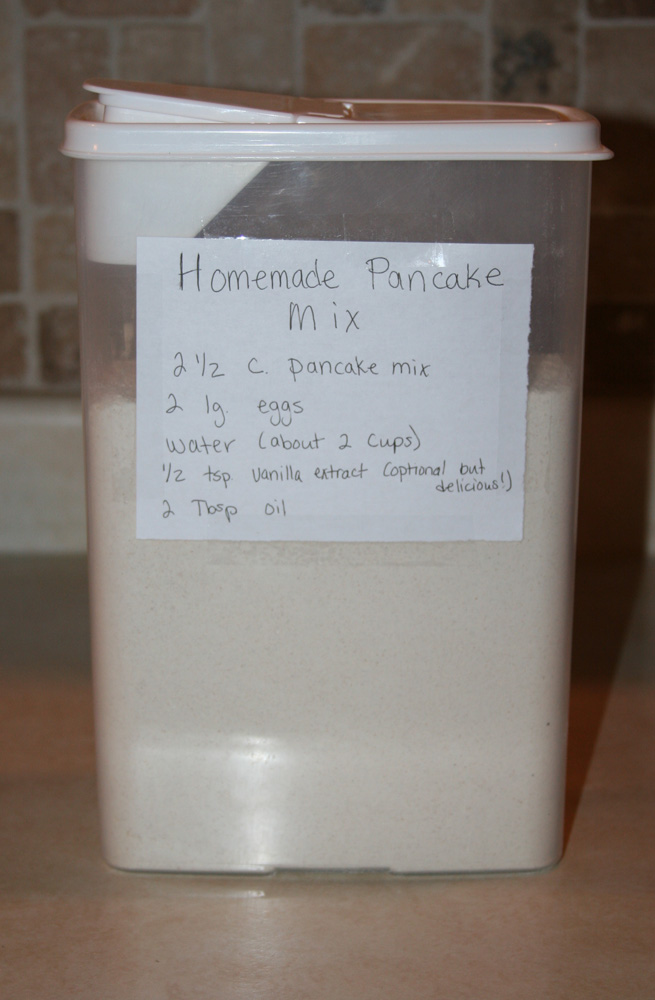 Homemade Pancake
Mix
2 1/2 c. pancake mix
2 lg. eggs
water (about 2 cups)
1/2 tsp. vanilla extract (optional but
delicious!)
2 Tbsp oil